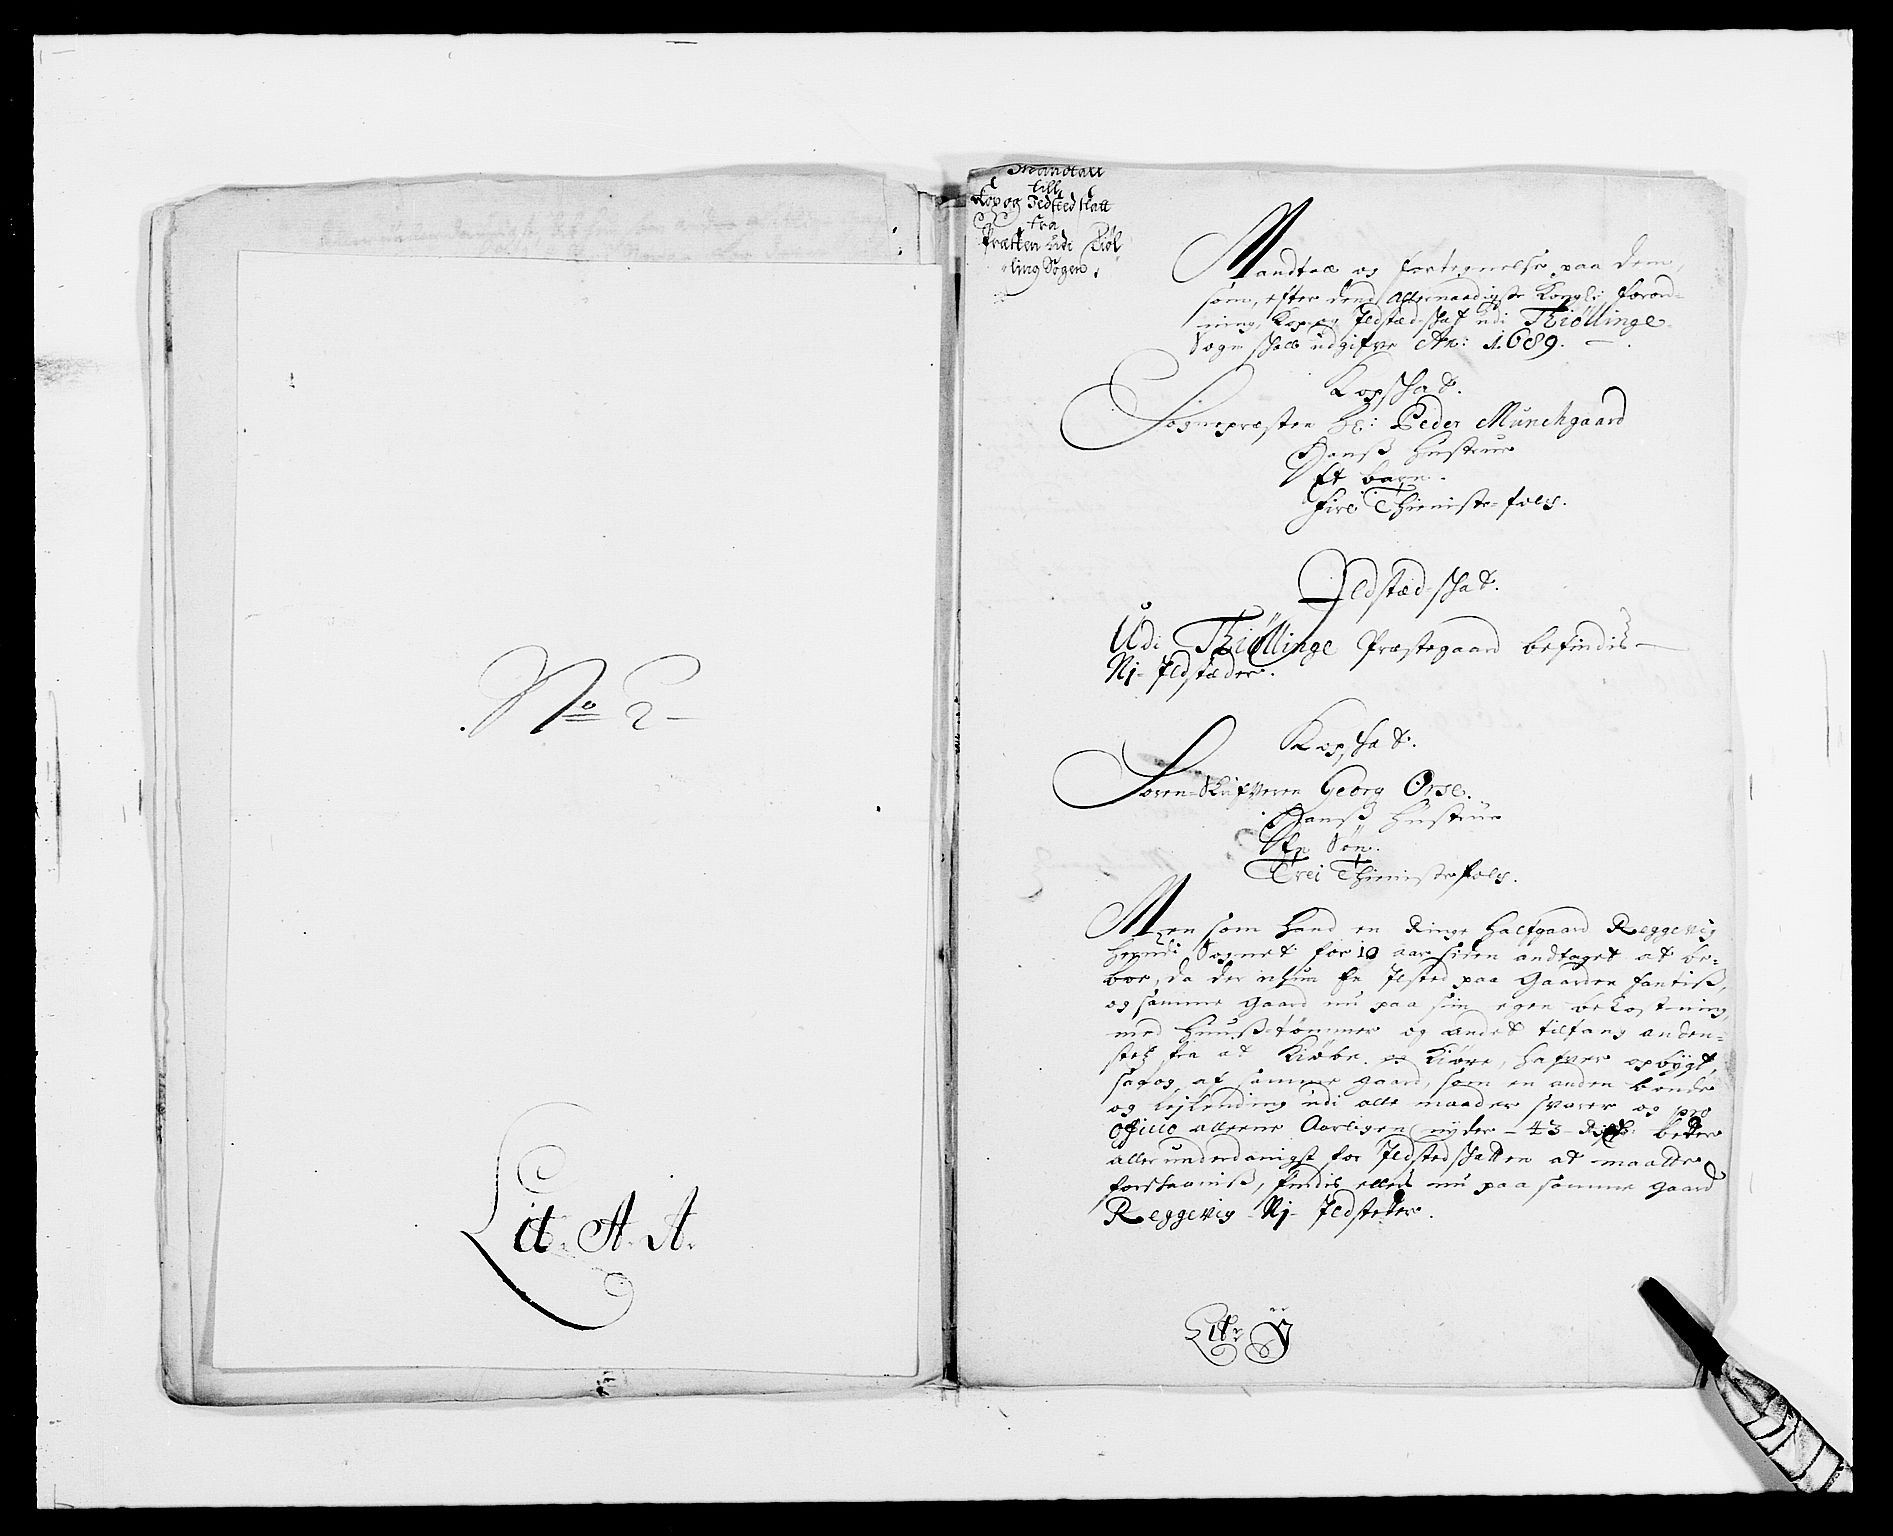 No 2
Lit. A. A.
Mandtall
till
Kop og Ildsted skatt
fra
Præsten udi Tiøl
ling Sogen
Mandtal og fortegnelse paa dem,
som, efter dend Allernaadigste Kongl: Forord-
ning, Kop og Ildstæd-skat udi Thiøllinge
Sogn skall udgifve An: 1689.
Kopskat.
Sognepræsten Hr: Peder Munchgaard
Hanß Hustrue
Et barn.
Fire Thieniste-folch.
Ildstæd-skat.
Udi Thiøllinge Præstegaard befindis
Nj- Ildstæder.
Kopskat.
Soren-Skrifveren Georg Orse.
Hanß Hustrue
En Søn.
Trei Thienistefolch.
Men som hand en Ringe halfgaard Reggevig
her udi Sognet for 10 aar siden andtaget at be-
boe, da der ichun En Ilsted paa Gaarden fantiß,
og samme gaard nu paa sin egen bekostning,
med Huuß-tømmer og andet tilfang anden-
steds fra at Kiøbe og Kiøre, hafver opbygt,
saa og af samme gaard, som en anden bonde
og Lejlending udi alle maader svarer og pro
Officio alleene Aarligen nyder - 43 - Rixdr: beder
allerunderdanigst for Ildstedskatten at maatte
forskaaniß, findis ellers nu paa samme gaard
Reggevig - Nj - Ildsteder.
Litr Y